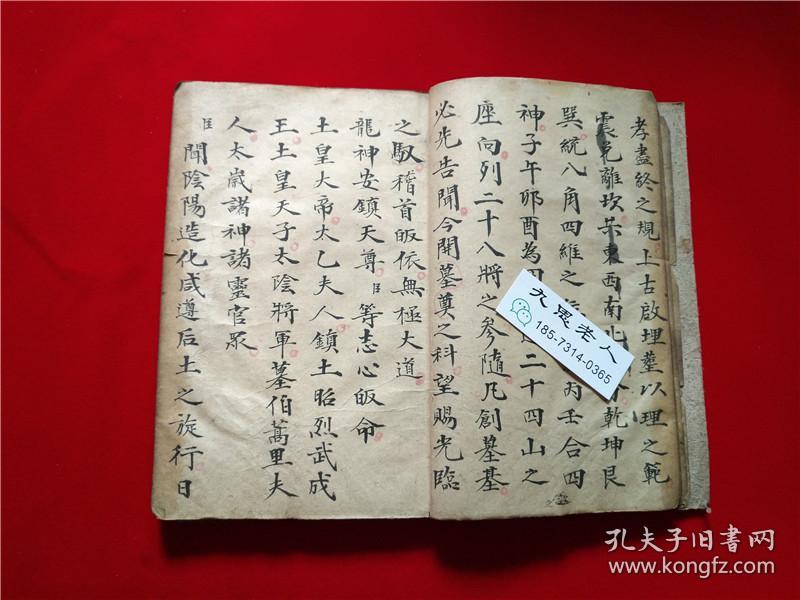 孝盡終之規上古啟埋塟以理之範
震兌離坎 東西南北 乾坤艮
巽統八角四維之 丙壬合四
神子午卯酉為 二十四山之
座向列二十八將之參隨凡創墓基
必先告聞今開墓奠之科望賜光臨
之馭稽首皈依無極大道
龍神安鎮天尊臣等志心皈命
土皇大帝太乙夫人鎮土昭烈武成
王土皇天子太陰將軍墓伯蒿里夫
人太歲諸神諸靈官眾
臣聞陰陽造化咸遵后土之旋行日
九思老人
185-7314-0365
孔夫子旧书网
www.kongfz.com